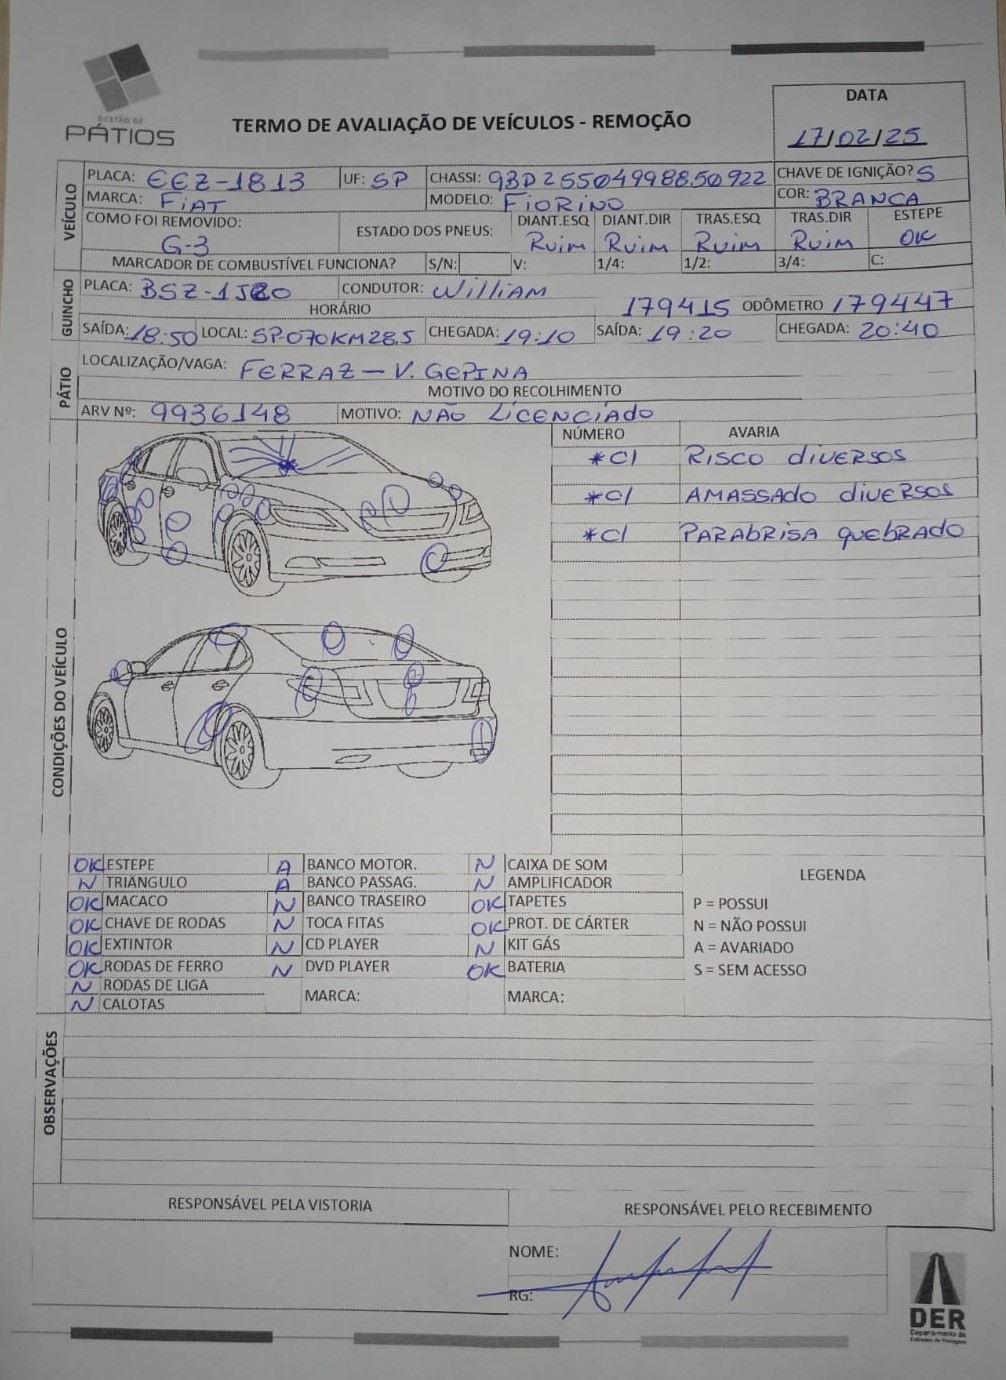 GESTÃO DE
PÁTIOS
TERMO DE AVALIAÇÃO DE VEÍCULOS - REMOÇÃO
DATA
17/02/25
VEÍCULO
PLACA: EEZ-1813 UF: SP CHASSI: 9BD25504998850922 CHAVE DE IGNIÇÃO? S
MARCA: FIAT MODELO: FIORINO COR: BRANCA
COMO FOI REMOVIDO: G-3 ESTADO DOS PNEUS: DIANT.ESQ Ruim DIANT.DIR Ruim TRAS.ESQ Ruim TRAS.DIR Ruim ESTEPE OK
MARCADOR DE COMBUSTÍVEL FUNCIONA? S/N: V: 1/4: 1/2: 3/4: C:
GUINCHO
PLACA: BSZ-1J20 CONDUTOR: William
HORÁRIO 179415 ODÔMETRO 179447
SAÍDA: 18:50 LOCAL: SP-070 KM 28,5 CHEGADA: 19:10 SAÍDA: 19:20 CHEGADA: 20:40
PÁTIO
LOCALIZAÇÃO/VAGA: FERRAZ - V. GEPINA
MOTIVO DO RECOLHIMENTO
ARV Nº: 9936148 MOTIVO: NÃO LICENCIADO
CONDIÇÕES DO VEÍCULO
NÚMERO AVARIA
*C/ RISCO diVERSOS
*C/ AMASSADO diVERSOS
*C/ PARAbRISA quEBRADO
OK ESTEPE A BANCO MOTOR. N CAIXA DE SOM
N TRIÂNGULO A BANCO PASSAG. N AMPLIFICADOR
OK MACACO N BANCO TRASEIRO OK TAPETES
OK CHAVE DE RODAS N TOCA FITAS OK PROT. DE CÁRTER
OK EXTINTOR N CD PLAYER N KIT GÁS
OK RODAS DE FERRO N DVD PLAYER OK BATERIA
N RODAS DE LIGA MARCA: MARCA:
N CALOTAS
LEGENDA
P = POSSUI
N = NÃO POSSUI
A = AVARIADO
S = SEM ACESSO
OBSERVAÇÕES
RESPONSÁVEL PELA VISTORIA RESPONSÁVEL PELO RECEBIMENTO
NOME:
RG:
DER
Departamento de
Estradas de Rodagem